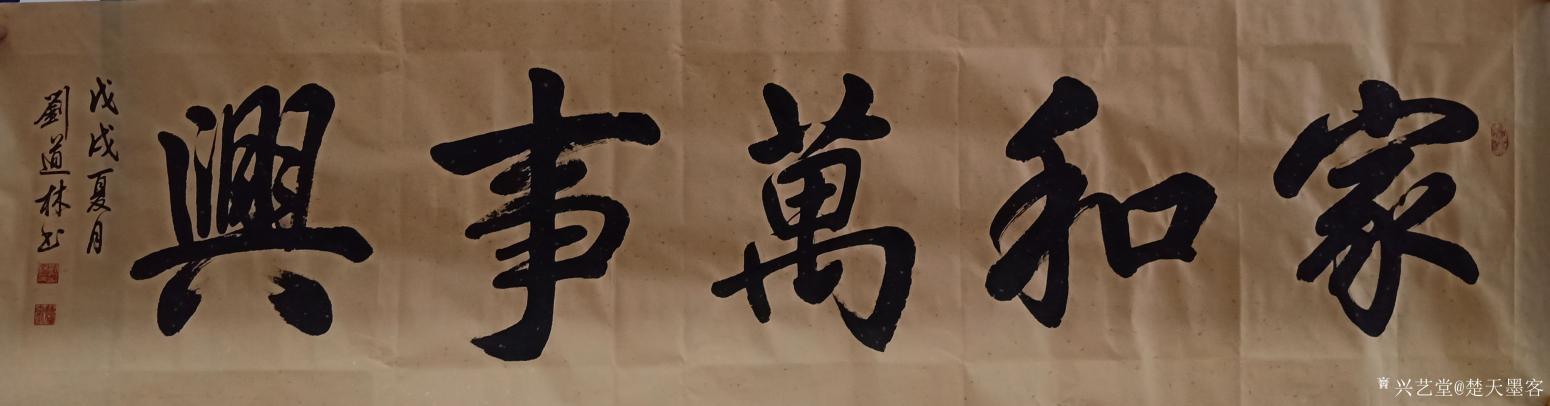 家和萬事興
戊戌夏月
劉道林书
兴艺堂@楚天墨客